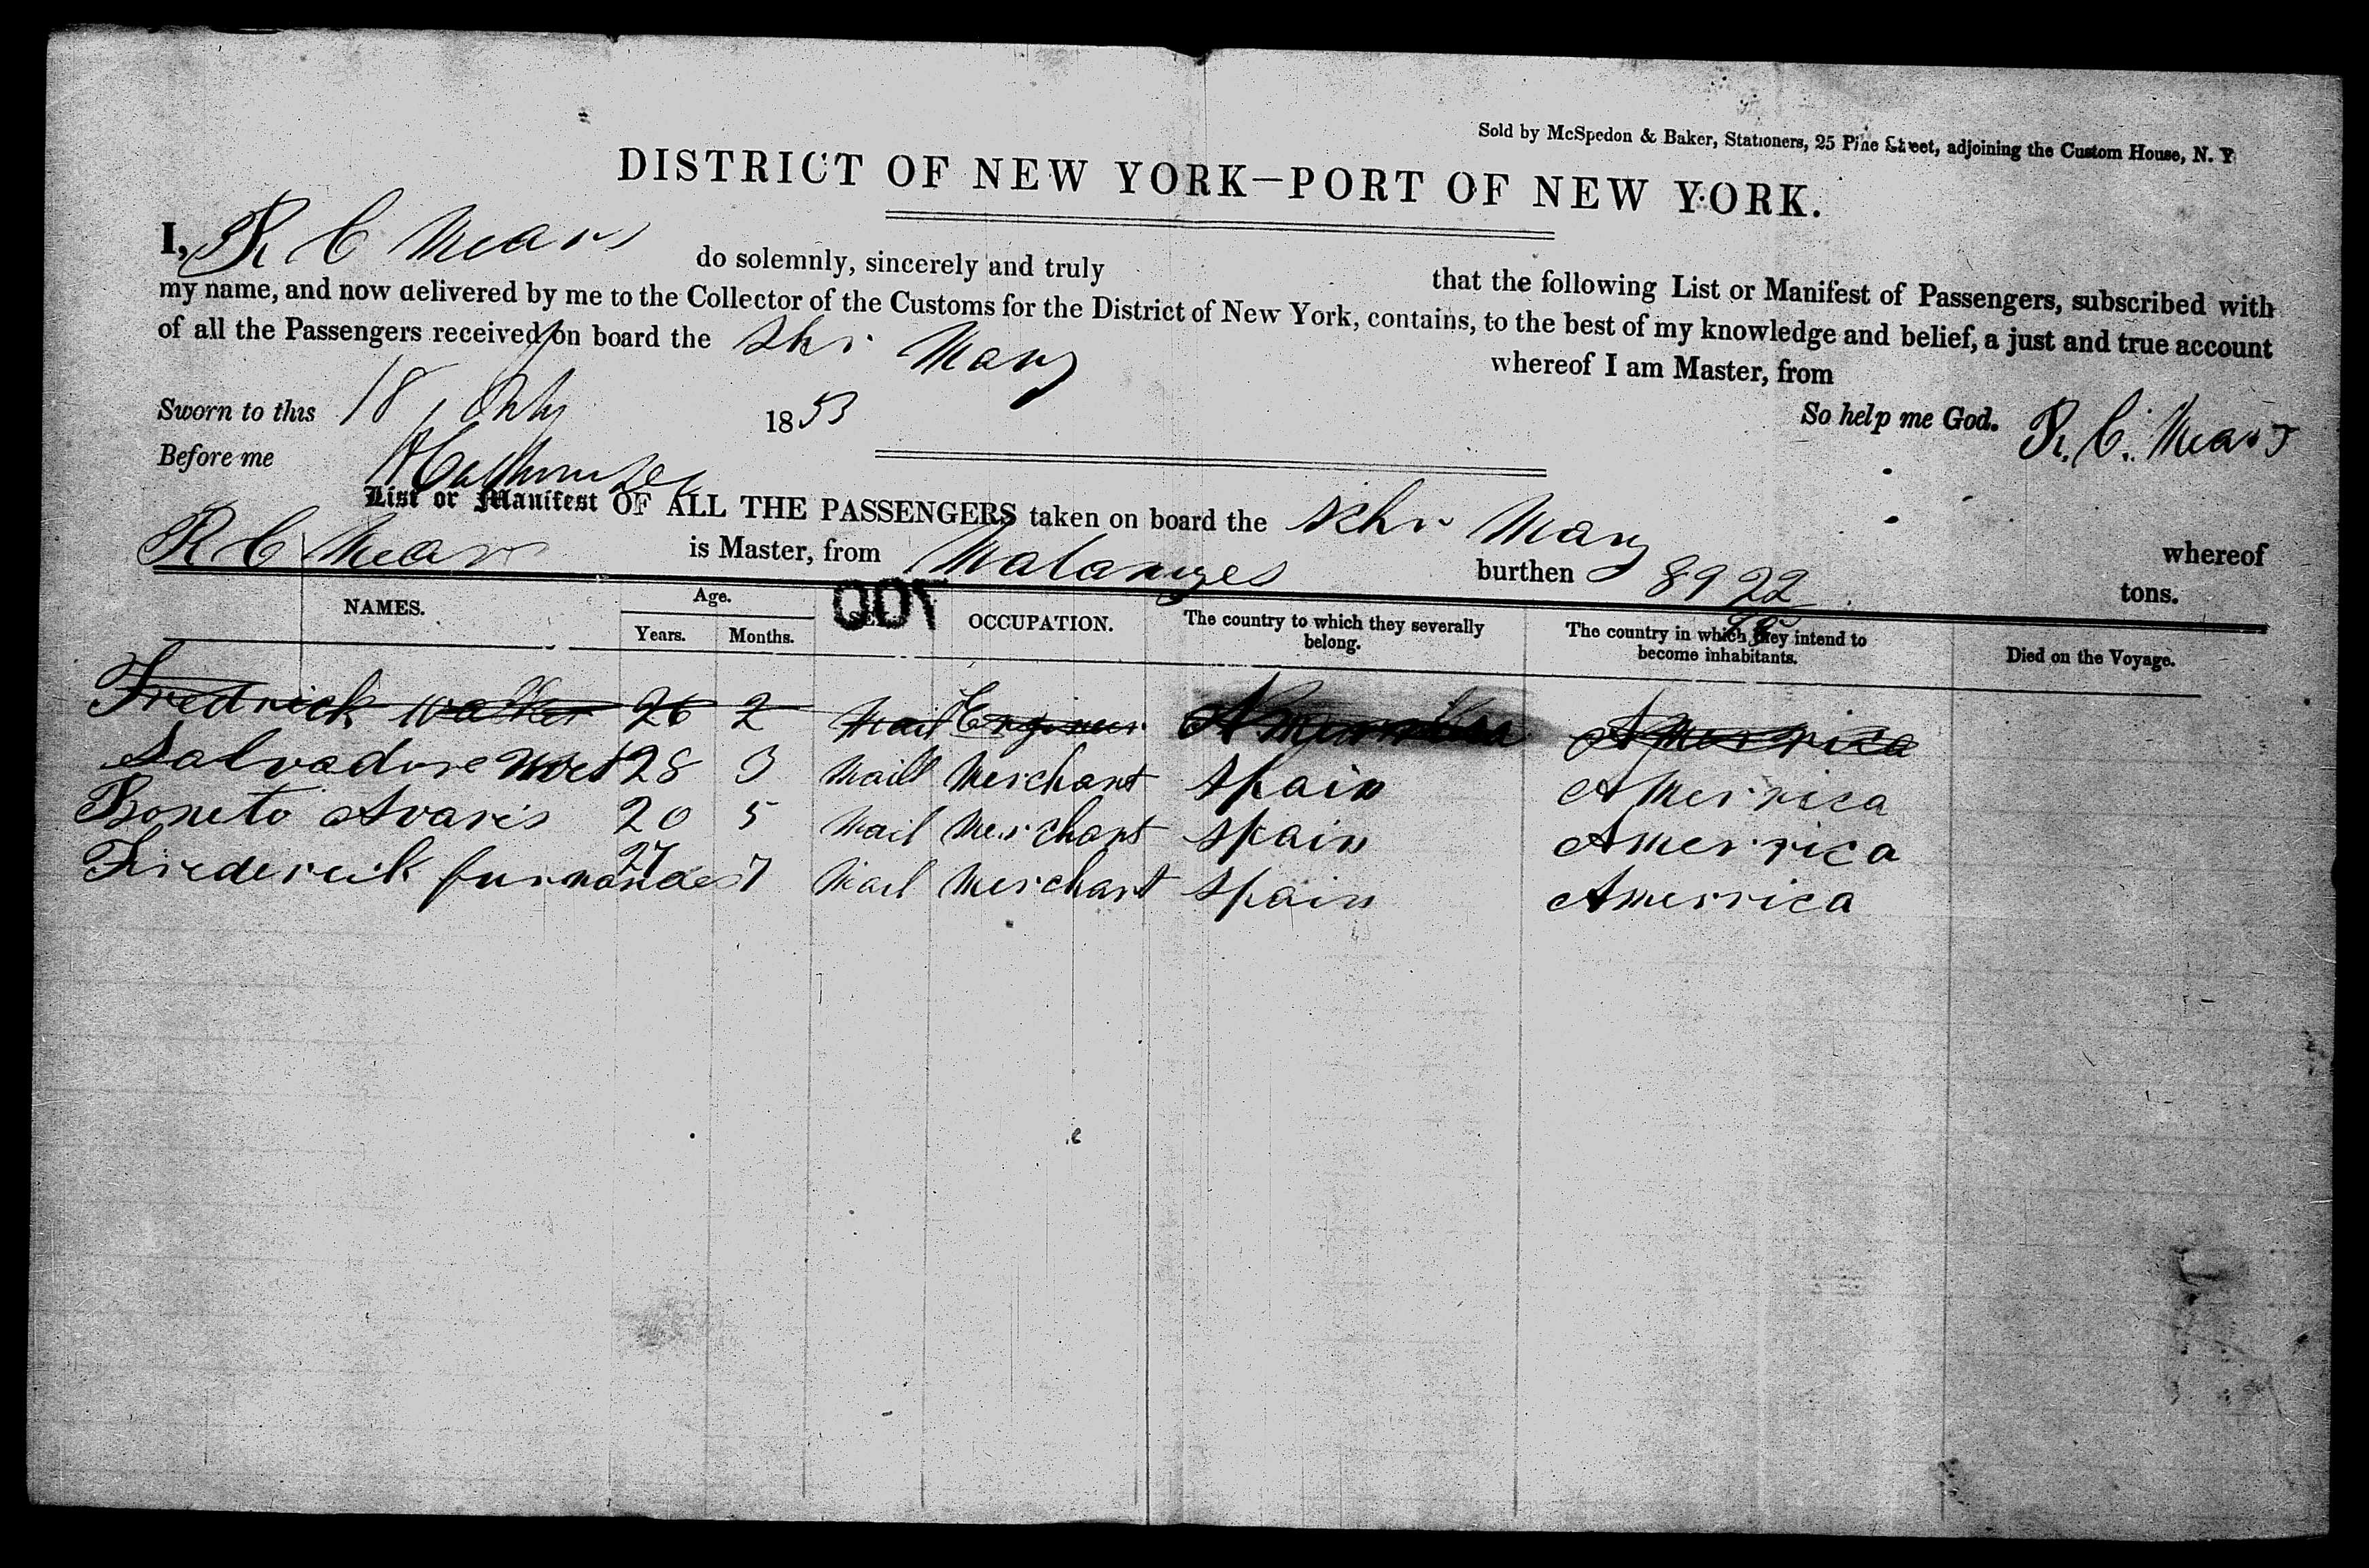 Sold by McSpedon & Baker, Stationers, 25 Pine Street, adjoining the Custom House, N. Y
DISTRICT OF NEW YORK—PORT OF NEW YORK.
I, R C Mears do solemnly, sincerely and truly that the following List or Manifest of Passengers, subscribed with
my name, and now delivered by me to the Collector of the Customs for the District of New York, contains, to the best of my knowledge and belief, a just and true account
of all the Passengers received on board the Shr Mary whereof I am Master, from
Sworn to this 18 1853 So help me God. R. C. Mears
Before me
List or Manifest OF ALL THE PASSENGERS taken on board the Schr Mary whereof
R C Mears is Master, from Matanzes burthen 89 22 tons.
NAMES. Age. OCCUPATION. The country to which they severally belong. The country in which they intend to become inhabitants. Died on the Voyage.
Years. Months.
Fredrick Walker 26 2 Mail Engineer America Amerrica
Salvadore 28 3 Maill Merchant Spain Amerrica
Boneto Avaris 20 5 Mail Merchant Spain Amerrica
Firedereik furnandes 27 7 Mail Merchant Spain Amerrica